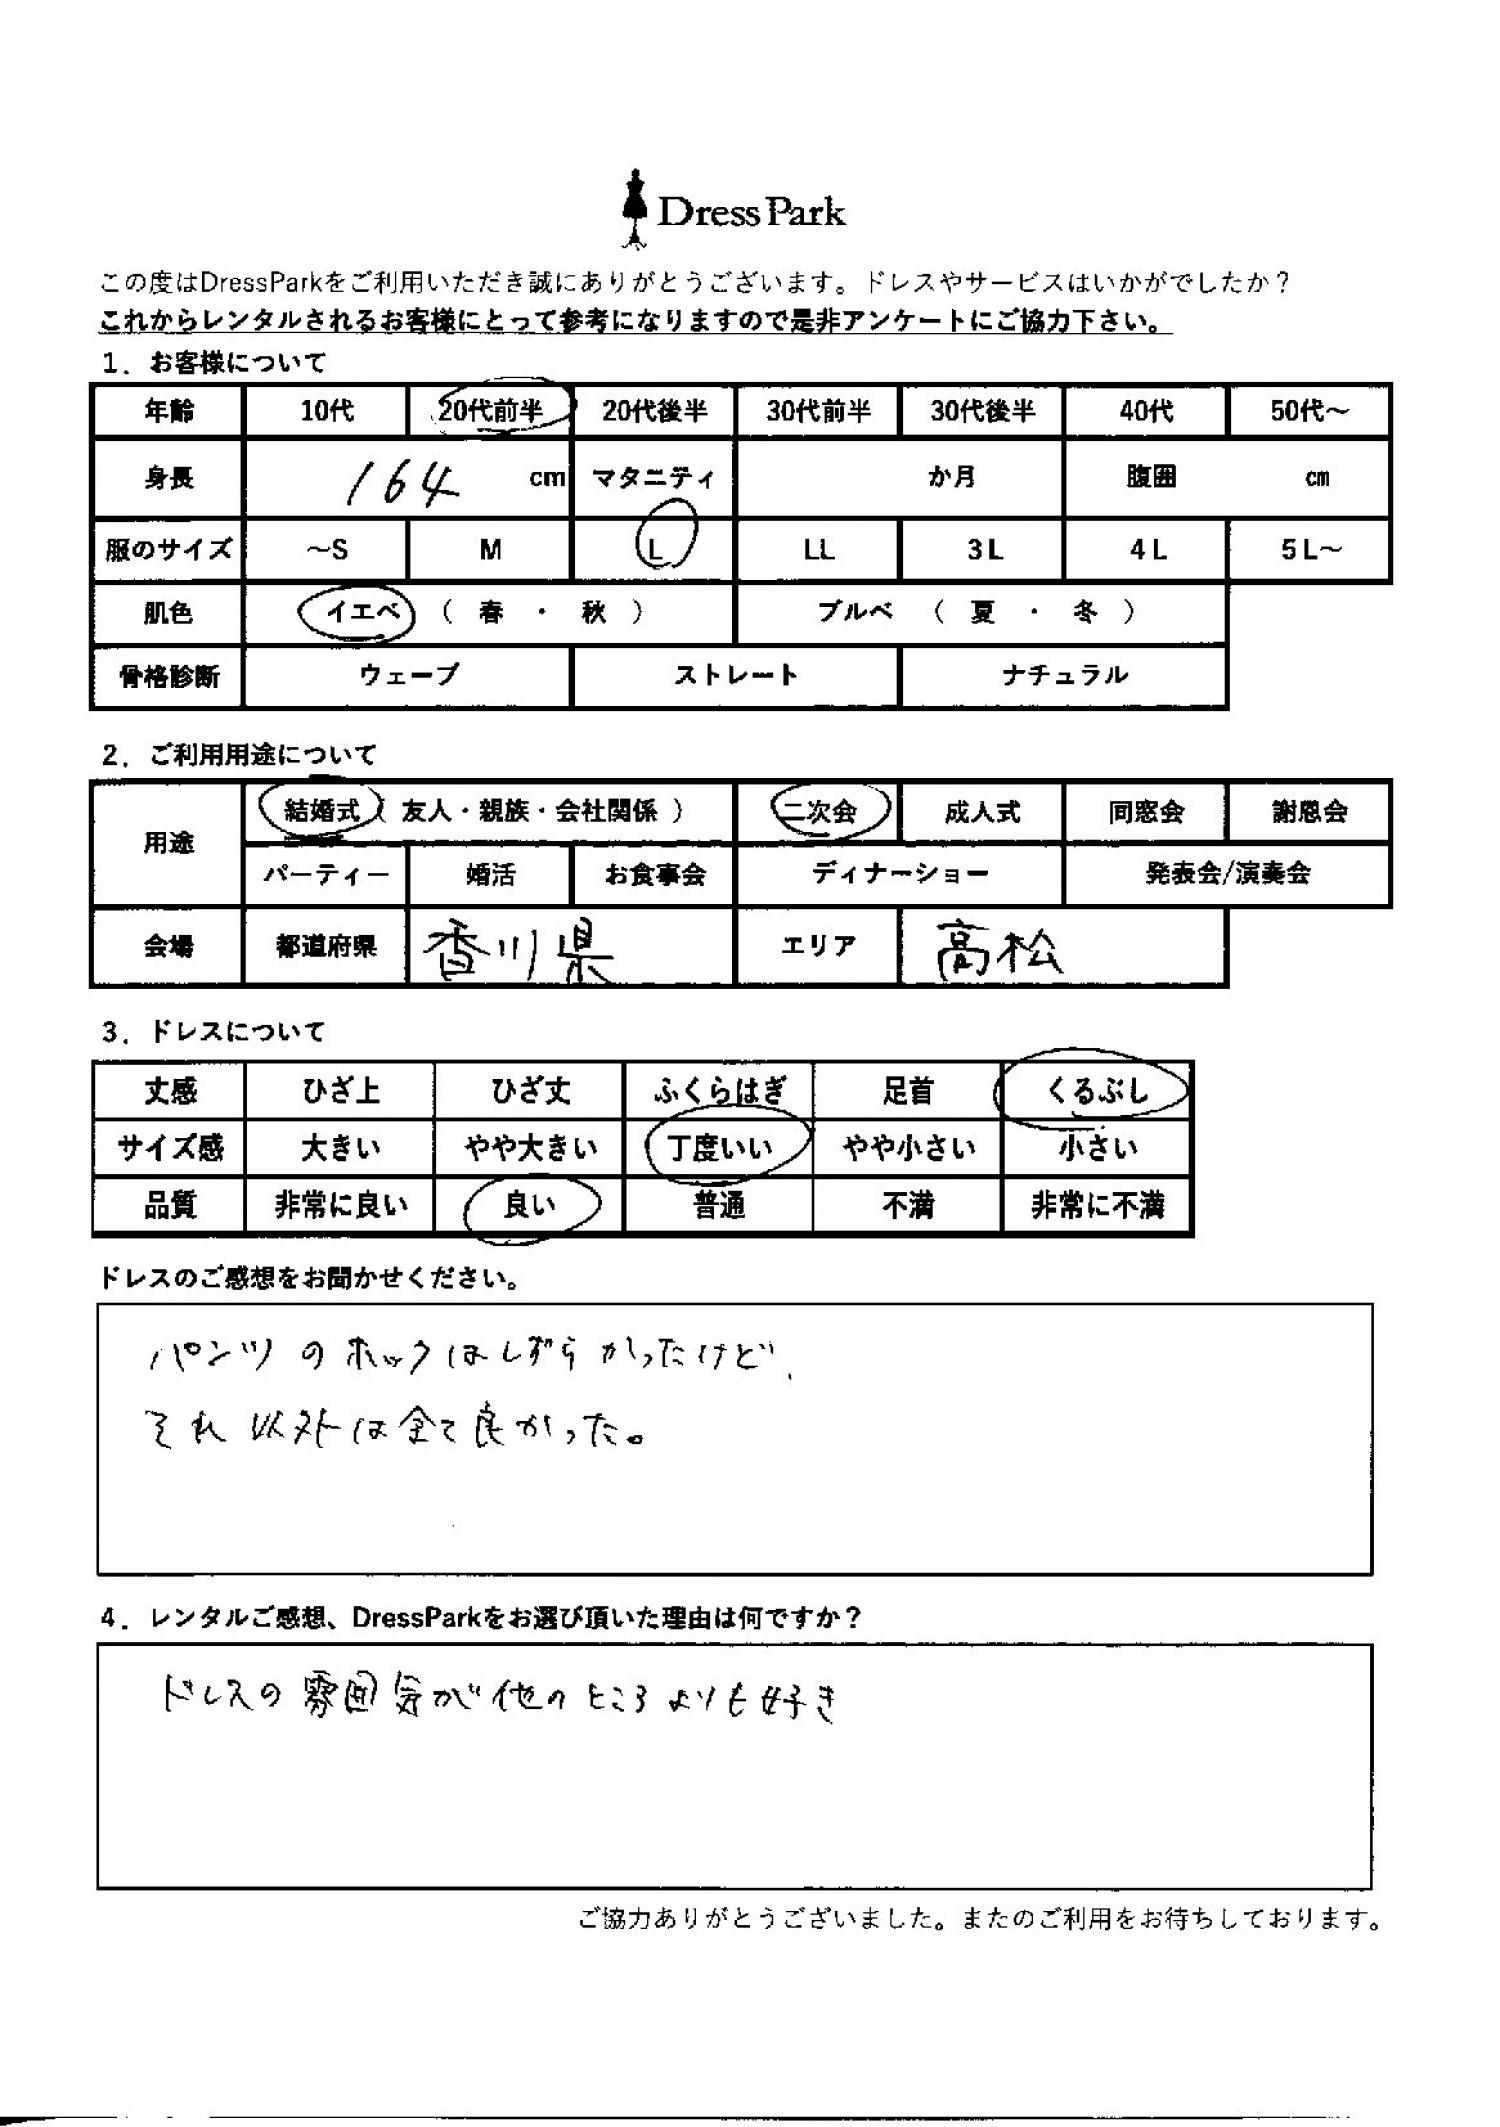 Dress Park
この度はDressParkをご利用いただき誠にありがとうございます。ドレスやサービスはいかがでしたか？
これからレンタルされるお客様にとって参考になりますので是非アンケートにご協力下さい。
1．お客様について
年齢 10代 20代前半 20代後半 30代前半 30代後半 40代 50代～
身長 164 cm マタニティ か月 腹囲 cm
服のサイズ ～S M L LL 3L 4L 5L～
肌色 イエベ （ 春 ・ 秋 ） ブルベ （ 夏 ・ 冬 ）
骨格診断 ウェーブ ストレート ナチュラル
2．ご利用用途について
用途 結婚式（ 友人・親族・会社関係 ） 二次会 成人式 同窓会 謝恩会
パーティー 婚活 お食事会 ディナーショー 発表会/演奏会
会場 都道府県 香川県 エリア 高松
3．ドレスについて
丈感 ひざ上 ひざ丈 ふくらはぎ 足首 くるぶし
サイズ感 大きい やや大きい 丁度いい やや小さい 小さい
品質 非常に良い 良い 普通 不満 非常に不満
ドレスのご感想をお聞かせください。
パンツのホックはしずらかったけど、
それ以外は全て良かった。
4．レンタルご感想、DressParkをお選び頂いた理由は何ですか？
ドレスの雰囲気が他のところよりも好き
ご協力ありがとうございました。またのご利用をお待ちしております。